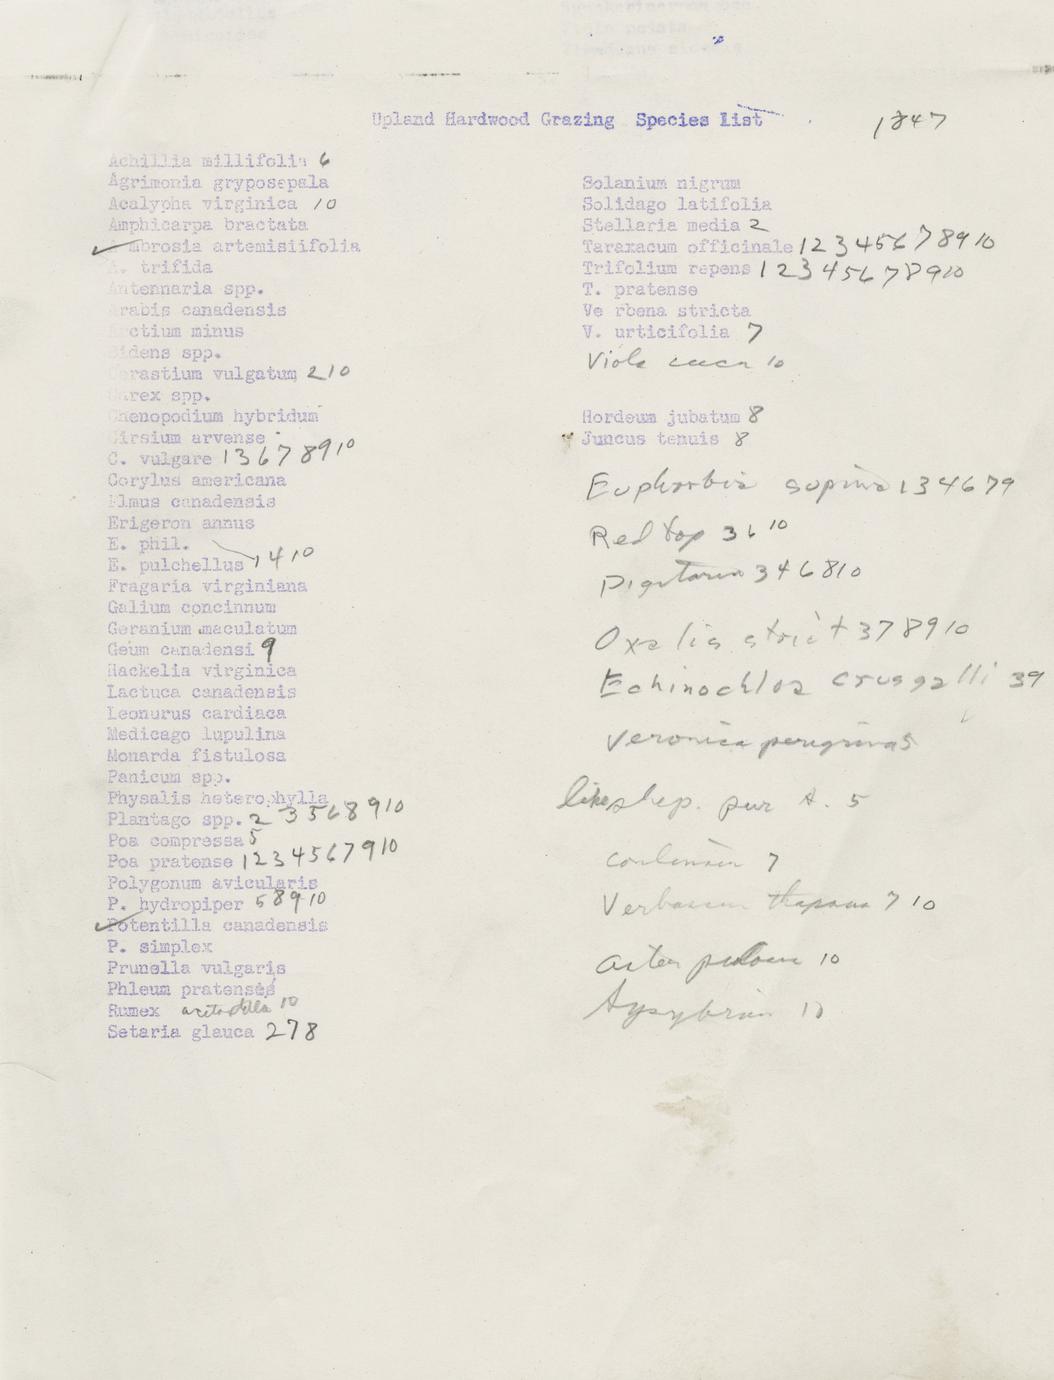 Upland Hardwood Grazing Species List 1847
Achillia millifolia 6
Agrimonia gryposepala
Acalypha virginica 10
Amphicarpa bractata
✓ Ambrosia artemisiifolia
A. trifida
Antennaria spp.
Arabis canadensis
Arctium minus
Bidens spp.
Cerastium vulgatum 2 10
Carex spp.
Chenopodium hybridum
Cirsium arvense
C. vulgare 1 3 6 7 8 9 10
Corylus americana
Elmus canadensis
Erigeron annus
E. phil.
E. pulchellus 1 4 10
Fragaria virginiana
Galium concinnum
Geranium maculatum
Geum canadensi 9
Hackelia virginica
Lactuca canadensis
Leonurus cardiaca
Medicago lupulina
Monarda fistulosa
Panicum spp.
Physalis heterophylla
Plantago spp. 2 3 5 6 8 9 10
Poa compressa 5
Poa pratense 1 2 3 4 5 6 7 9 10
Polygonum avicularis
P. hydropiper 5 8 9 10
✓ Potentilla canadensis
P. simplex
Prunella vulgaris
Phleum pratense
Rumex 10
Setaria glauca 2 7 8
Solanium nigrum
Solidago latifolia
Stellaria media 2
Taraxacum officinale 1 2 3 4 5 6 7 8 9 10
Trifolium repens 1 2 3 4 5 6 7 8 9 10
T. pratense
Ve rbena stricta
V. urticifolia 7
Viola 10
Hordeum jubatum 8
Juncus tenuis 8
Euphorbia supina 1 3 4 6 7 9
Red top 3 6 10
Digitaria 3 4 6 8 10
Oxalis strict 3 7 8 9 10
Echinochloa crusgalli 3 9
Veronica peregrina 5
like shep. pur 5
7
Verbascum thapsus 7 10
Aster 10
10